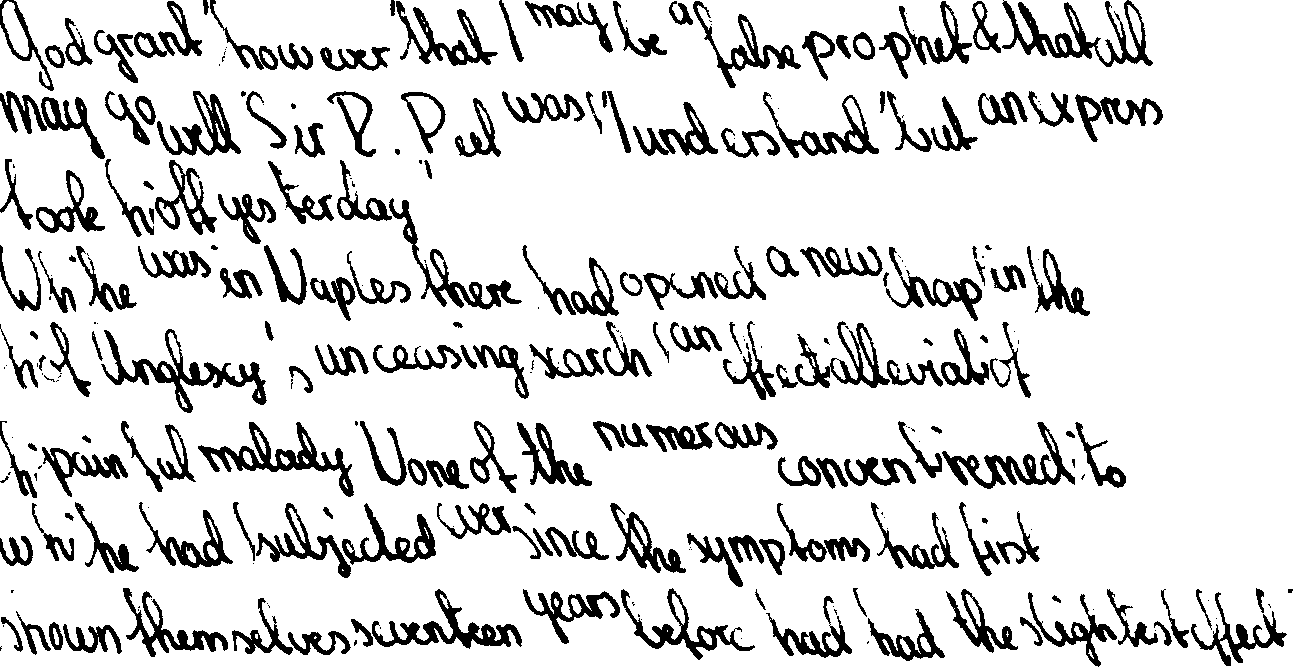 God grant "however" that I may be a false prophet & that all
may go well Sir R. Peel was "I understand" but an express
took hi off yesterday"
Whi he was in Naples there had opened a new chap in the
hi of Anglesey's unceasing search an effect alleviati of
hi painful malady None of the numerous conventi remedi to
whi he had subjected ever since the symptoms had first
shown themselves seventeen years before had had the slightest effect